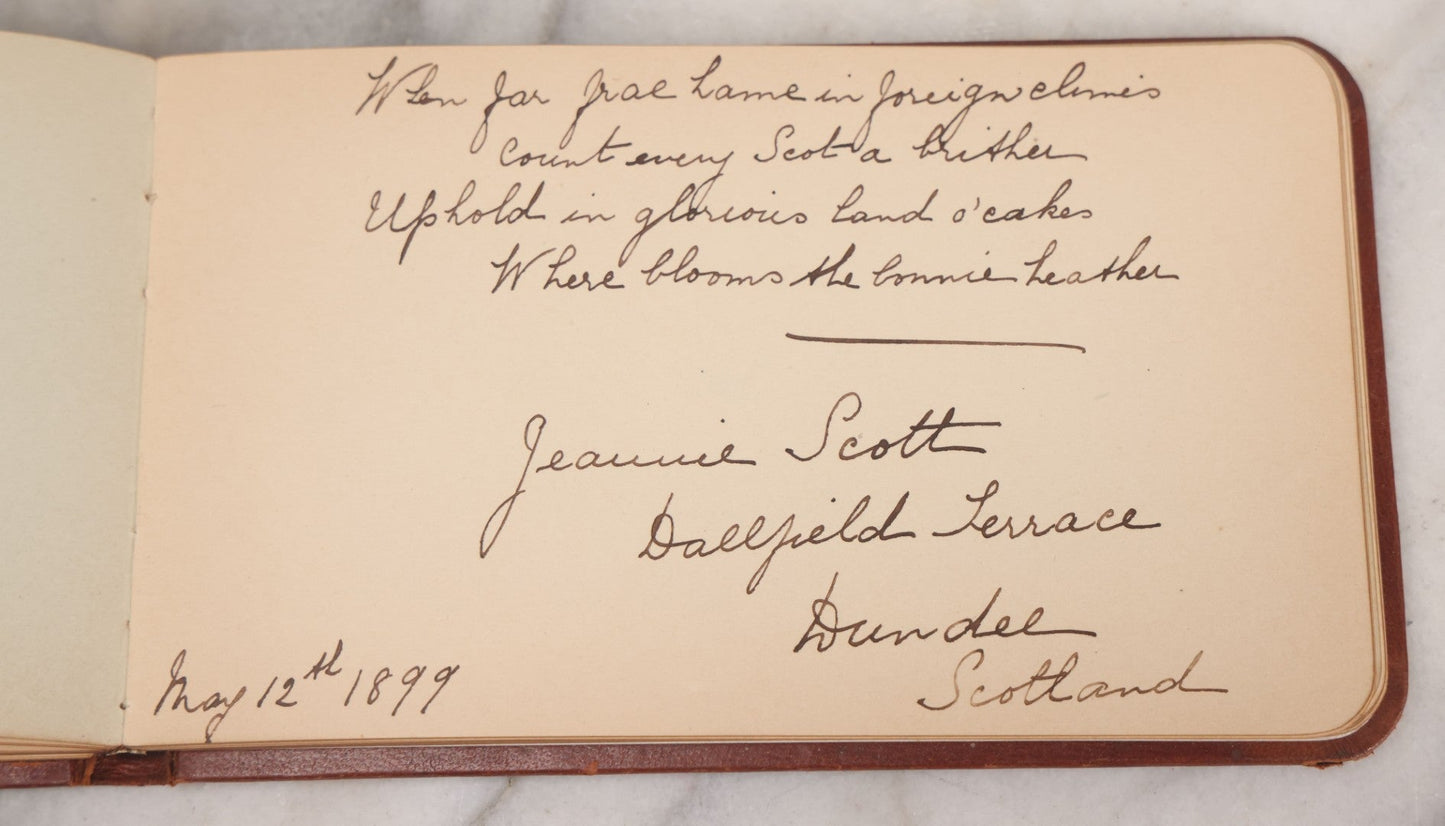 When far frae hame in foreign climes
count every Scot a brither
Uphold in glorious land o'cakes
Where blooms the bonnie heather
Jeannie Scott
Dallfield Terrace
Dundee
Scotland
May 12th 1899